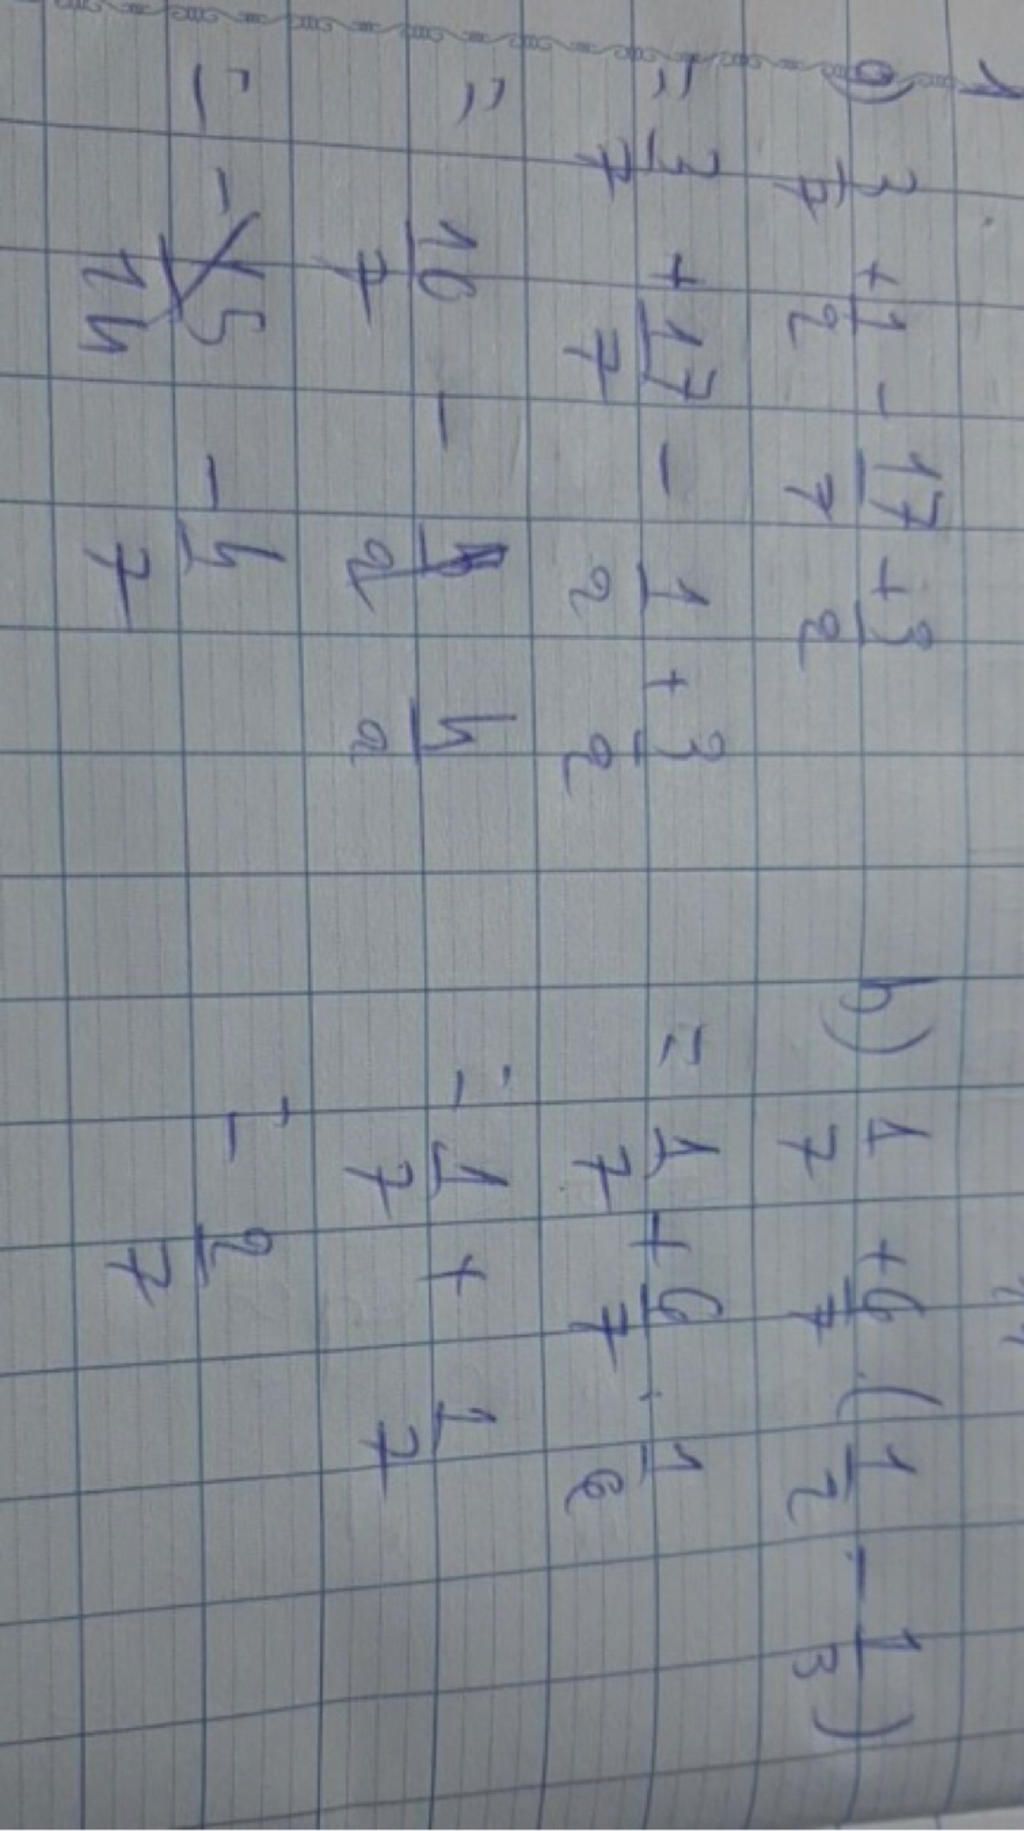 1
a) 3/7 + 1/2 - 17/7 + 3/2
= 3/7 + 17/7 - 1/2 + 3/2
= 10/7 - 4/2
= - 4/7
b) 1/7 + 6/7 . (1/2 - 1/3)
= 1/7 + 6/7 . 1/6
= 1/7 + 1/7
= 2/7